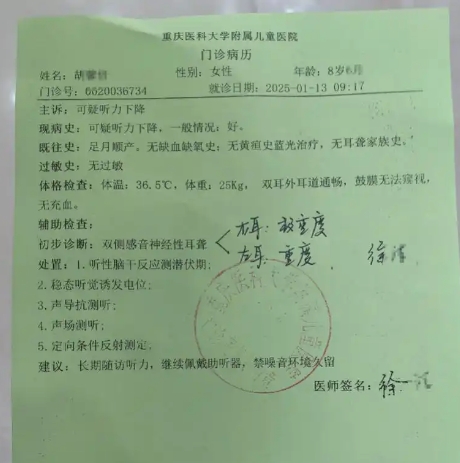 重庆医科大学附属儿童医院
门诊病历
姓名：胡 性别：女性 年龄：8岁
门诊号：6620036734 就诊日期：2025-01-13 09:17
主诉：可疑听力下降
现病史：可疑听力下降，一般情况：好。
既往史：足月顺产。无缺血缺氧史；无黄疸史蓝光治疗，无耳聋家族史。
过敏史：无过敏
体格检查：体温：36.5℃，体重：25Kg， 双耳外耳道通畅，鼓膜无法窥视，
无充血。
辅助检查：
初步诊断：双侧感音神经性耳聋
右耳：极重度
左耳：重度 徐
处置：1.听性脑干反应测潜伏期；
2.稳态听觉诱发电位；
3.声导抗测听；
4.声场测听；
5.定向条件反射测定.
建议：长期随访听力，继续佩戴助听器，禁噪音环境久留
医师签名：徐一